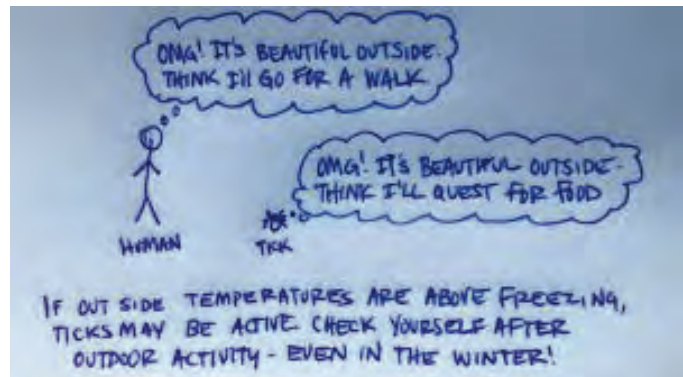 OMG! IT'S BEAUTIFUL OUTSIDE.
THINK I'll GO FOR A WALK
OMG! IT'S BEAUTIFUL OUTSIDE.
THINK I'LL QUEST FOR FOOD
HUMAN
TICK
IF OUT SIDE TEMPERATURES ARE ABOVE FREEZING,
TICKS MAY BE ACTIVE. CHECK YOURSELF AFTER
OUTDOOR ACTIVITY - EVEN IN THE WINTER!